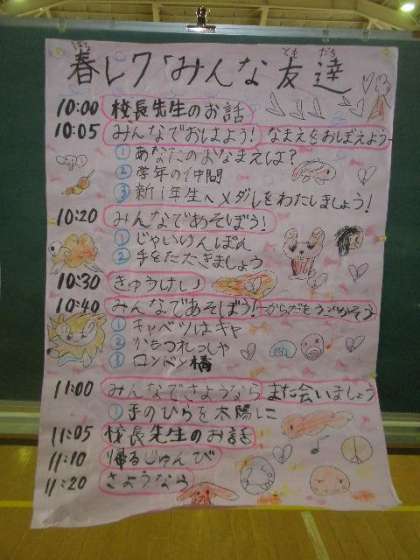 春レク「みんな友達
10:00 校長先生のお話
10:05 みんなでおはよう! なまえをおぼえよう
① あなたのおなまえは?
② 学年の仲間
③ 新1年生へメダルをわたしましょう!
10:20 みんなであそぼう!
① じゃいけんぽん
② 手をたたきましょう
10:30 きゅうけい
10:40 みんなであそぼう!からだをうごかそう
① キャベツはキャ
② かもつれっしゃ
③ ロンドン橋
11:00 みんなでさようなら また会いましょう
① 手のひらを太陽に
11:05 校長先生のお話
11:10 帰るじゅんび
11:20 さようなら